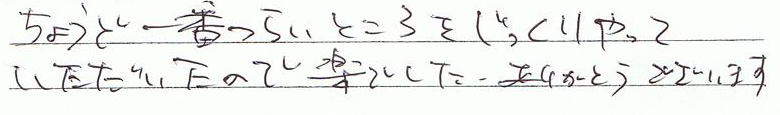 ちょうど一番つらいところをじっくりやって
いただいたので楽でした。ありがとうございます